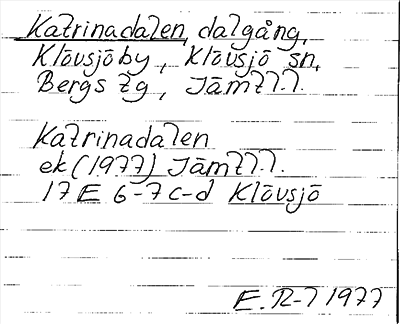 Katrinadalen, dalgång,
Klövsjöby, Klövsjö sn,
Bergs tg, Jämtl.l.
Katrinadalen
ek (1977) Jämtl.l.
17 E 6-7 c-d Klövsjö
E. R-7 1977